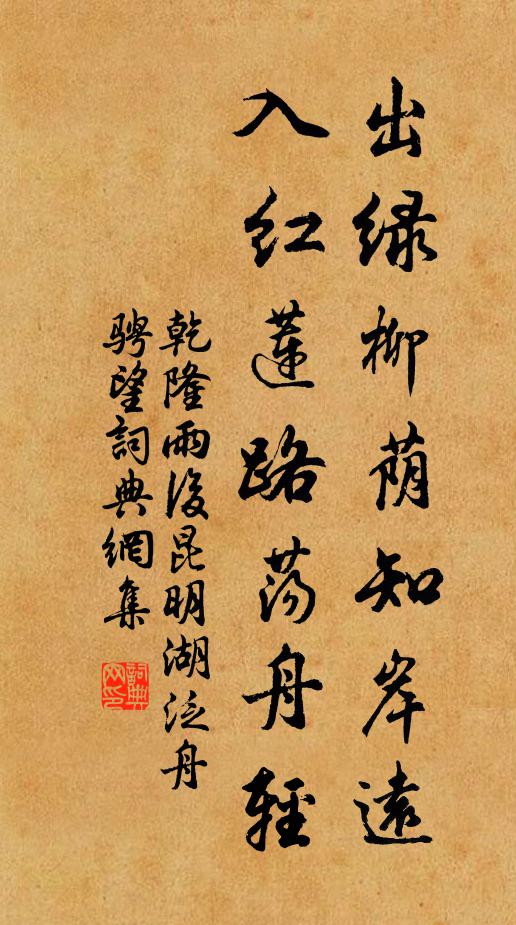 出绿柳荫知岸遠
入红蓮路荡舟輕
乾隆雨後昆明湖泛舟
骋望詞典網集
詞典网印